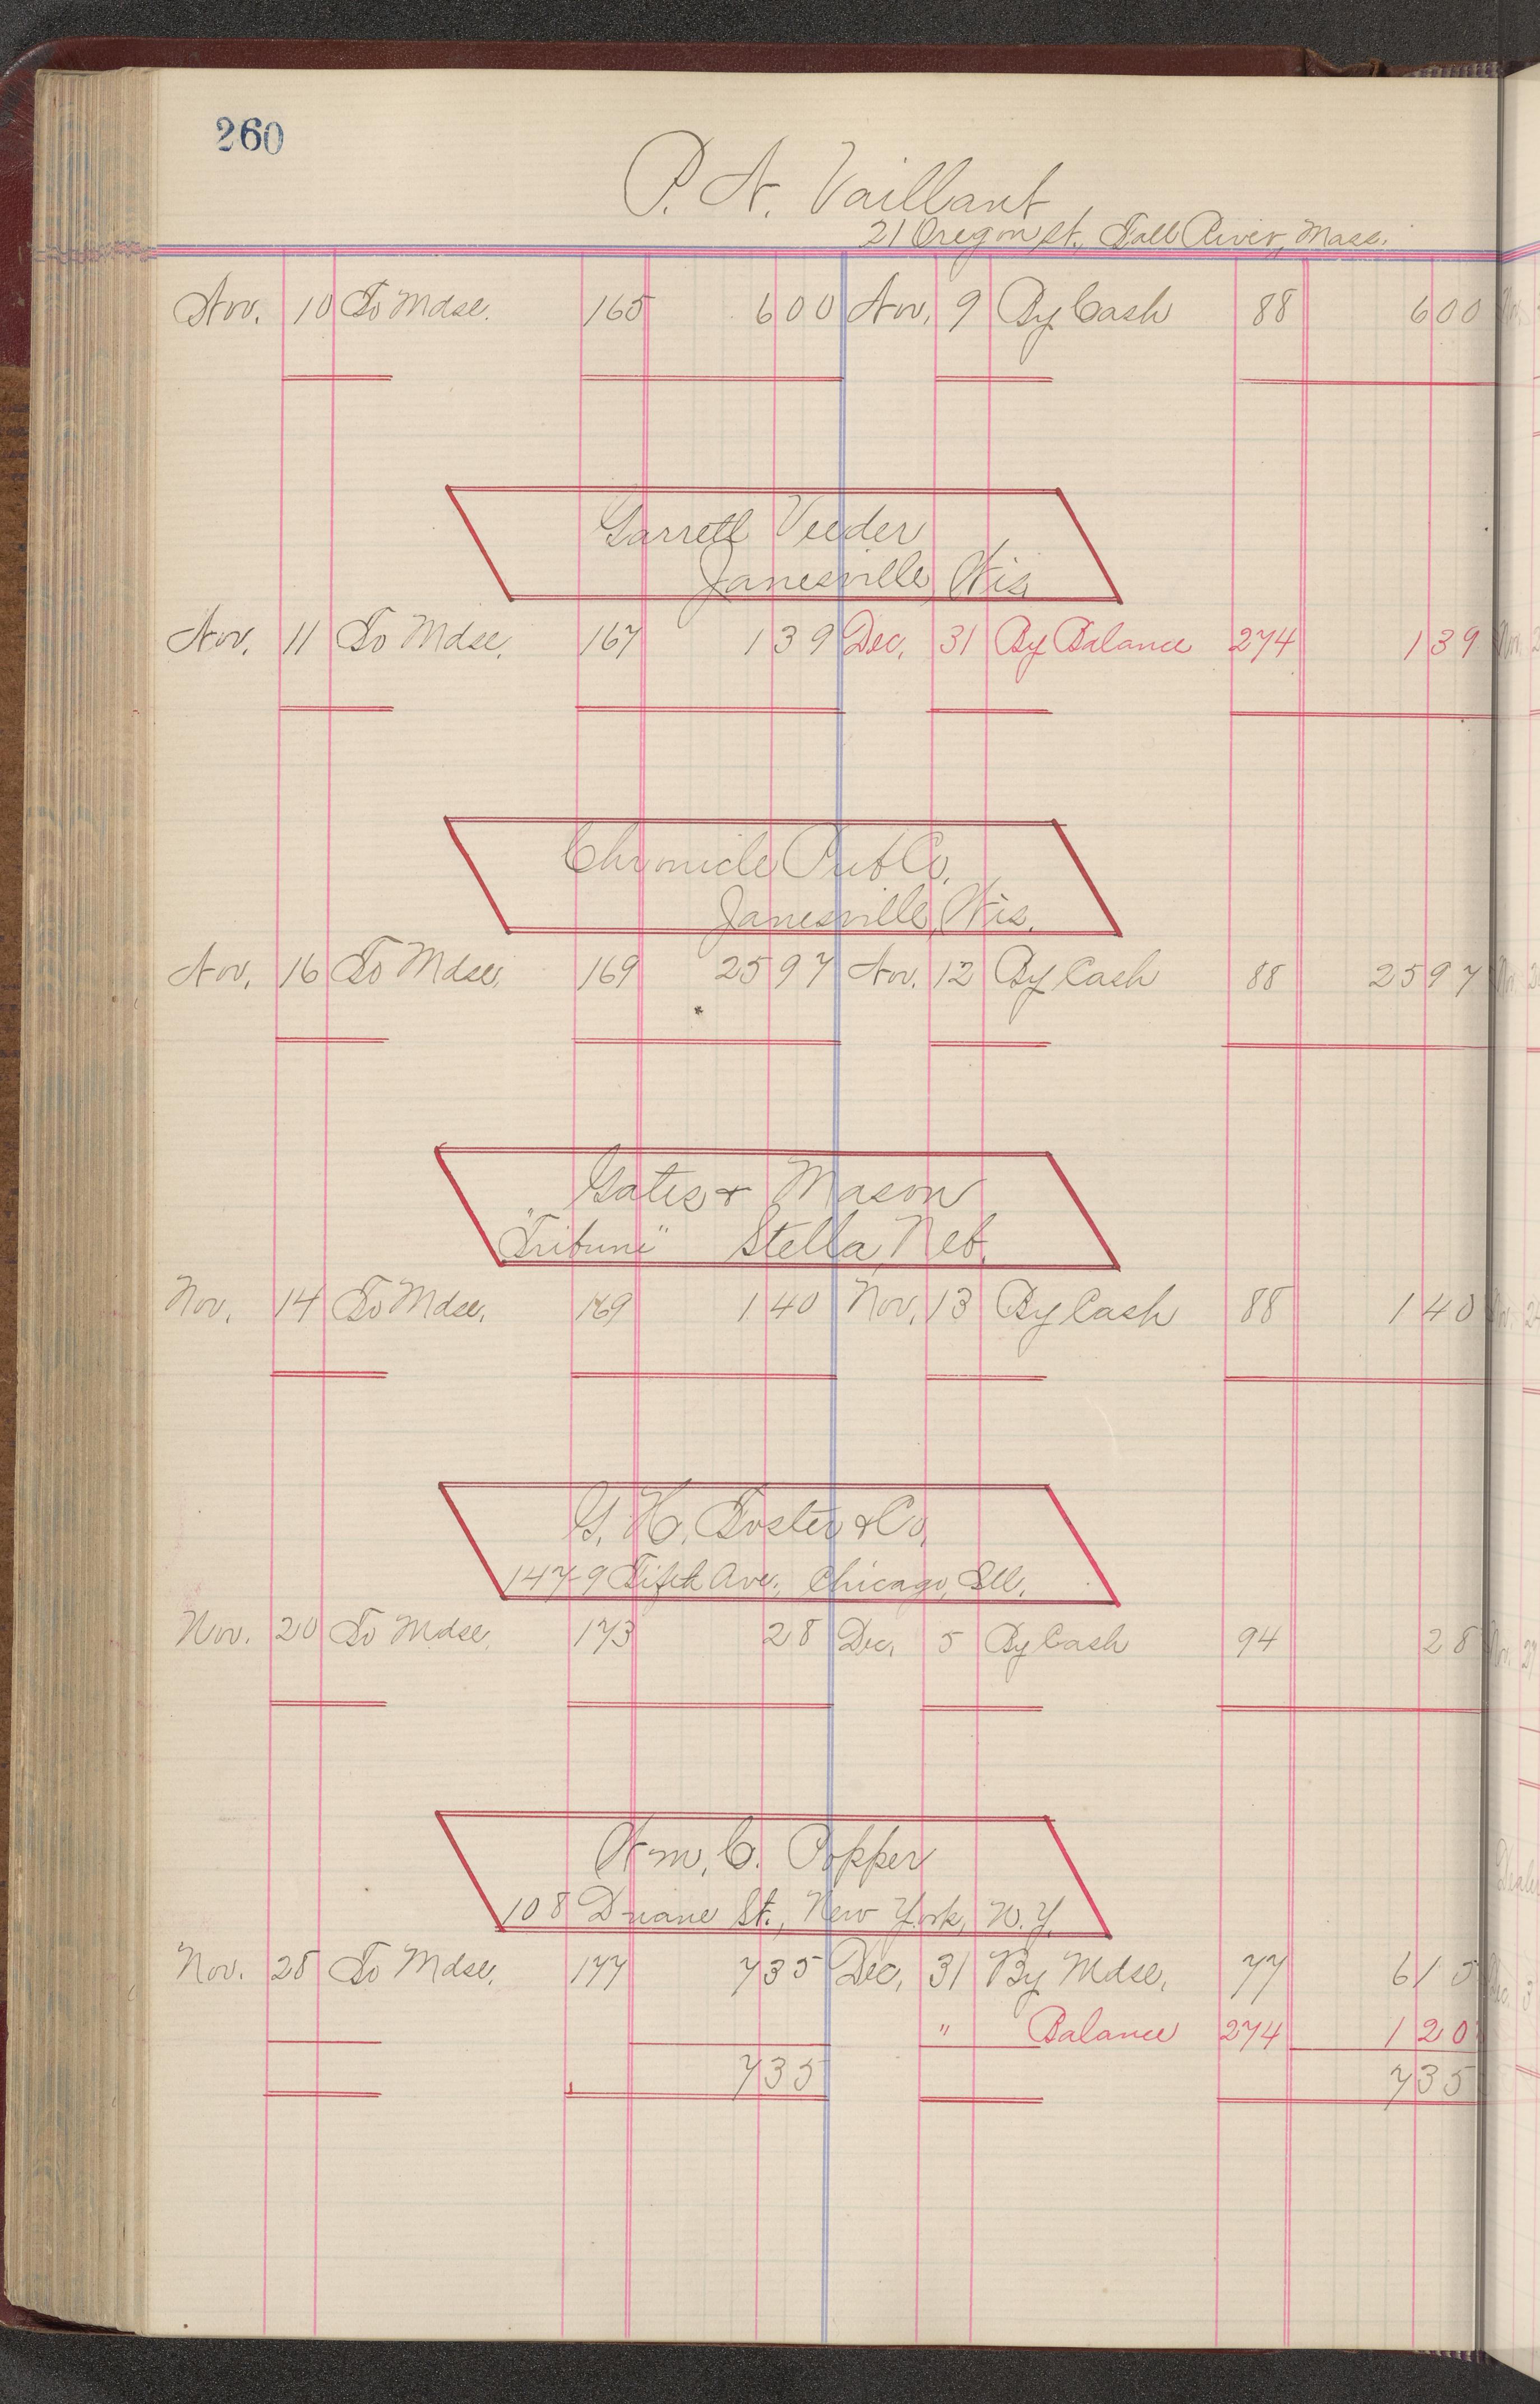 260
P. A. Vaillant
21 Oregon St., Fall River, Mass.
Nov. 10 To Mdse. 165 6 00 Nov. 9 By Cash 88 6 00
Garrett Veeder
Janesville, Wis.
Nov. 11 To Mdse. 167 1 39 Dec. 31 By Balance 274 1 39
Chronicle Pub Co.
Janesville, Wis.
Nov. 16 To Mdse. 169 25 97 Nov. 12 By Cash 88 25 97
Gates & Mason
"Tribune" Stella, Neb.
Nov. 14 To Mdse. 169 1 40 Nov. 13 By Cash 88 1 40
G. H. Foster & Co.
147-9 Fifth Ave., Chicago, Ill.
Nov. 20 To Mdse. 173 28 Dec. 5 By Cash 94 28
Wm. C. Popper
108 Duane St., New York, N.Y.
Nov. 28 To Mdse. 177 7 35 Dec. 31 By Mdse. 77 6 15
" Balance 274 1 20
7 35 7 35